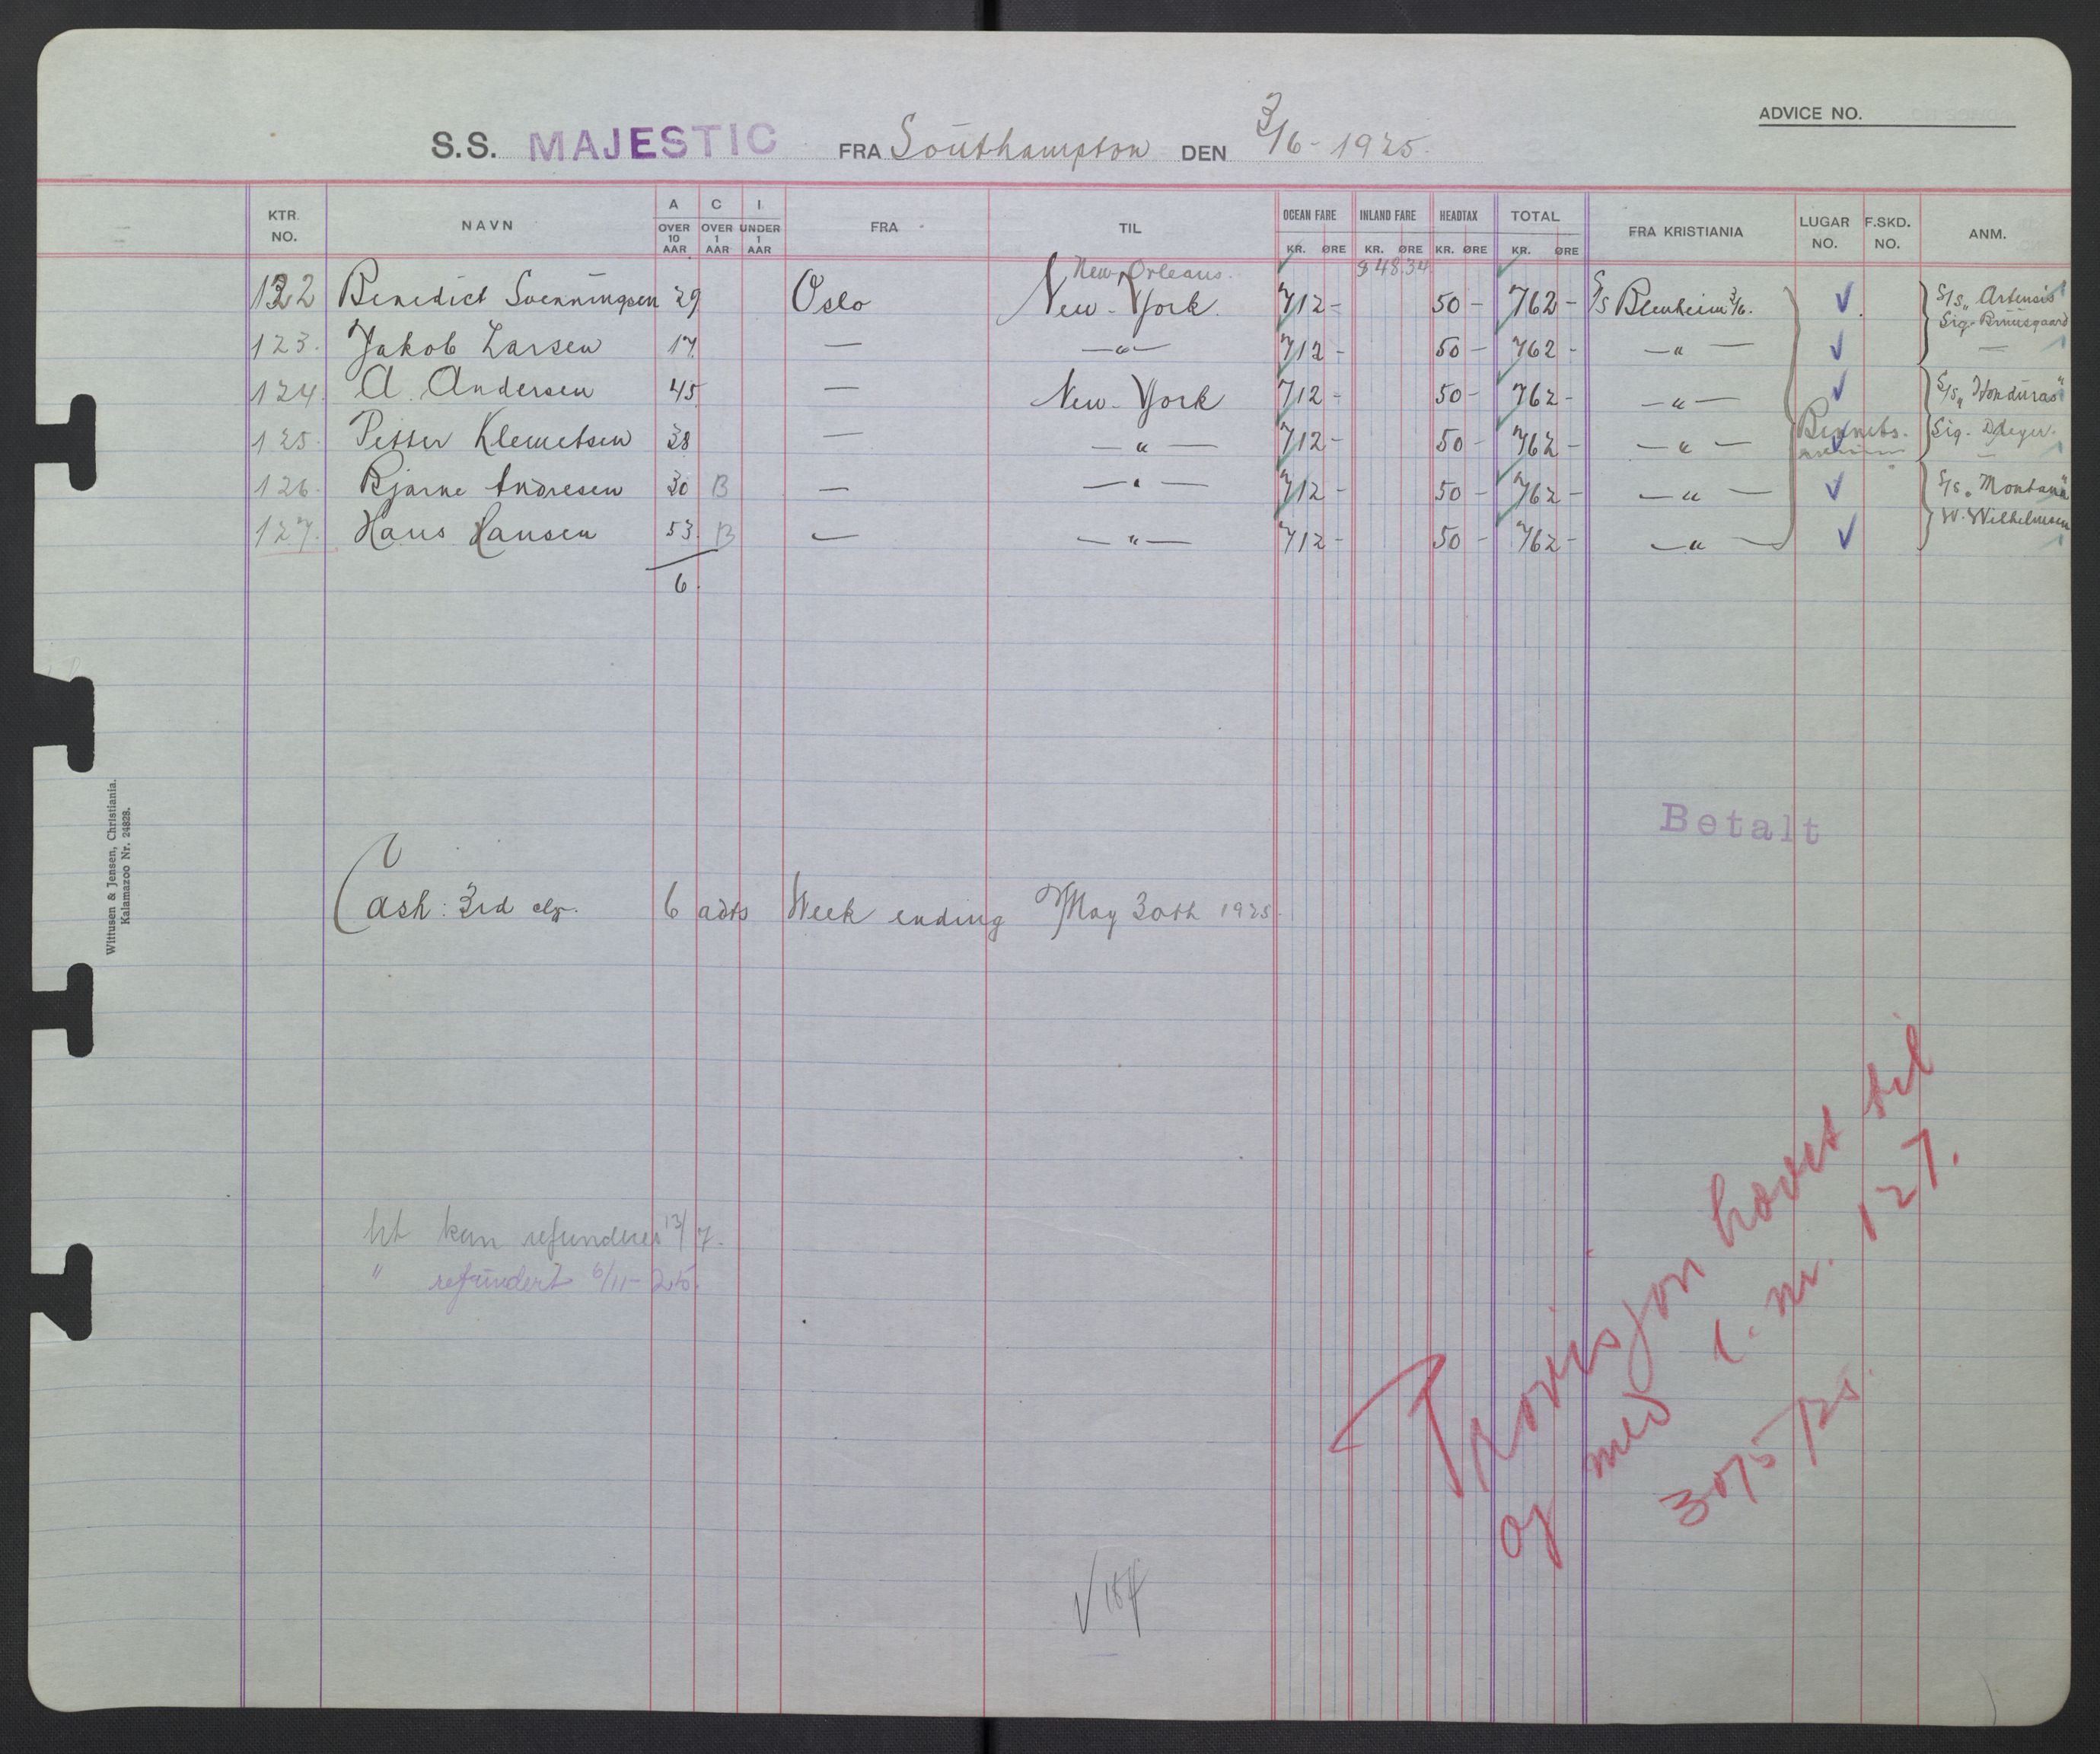 ADVICE NO.
S.S. MAJESTIC FRA Southampton DEN 3/6 - 1925.
KTR. NO. NAVN A OVER 10 AAR C OVER 1 AAR I UNDER 1 AAR FRA TIL OCEAN FARE KR. ØRE INLAND FARE KR. ØRE HEADTAX KR. ØRE TOTAL KR. ØRE FRA KRISTIANIA LUGAR NO. F.SKD. NO. ANM.
New-Orleans. $ 48.34
122 Benedict Svenningsen 29 Oslo New-York. 712 - 50 - 762 - S/S Blenheim 3/6. S/S „Artensis"
Sig. Bruusgaard
123. Jakob Larsen 17 — —"— 712 - 50 - 762 - —"— —
124. A. Andersen 45 — New-York 712 - 50 - 762 - —"— S/S „Honduras"
125. Petter Klemetsen 38 — —"— 712 - 50 - 762 - —"— Bennets. Sig. Meyer.
126. Bjarne Andresen 30 B — —"— 712 - 50 - 762 - —"— S/S „Montana"
127. Hans Hansen 53. B — —"— 712 - 50 - 762 - —"— W. Wilhelmsen
6.
Betalt
Cash: 3rd cls. 6 adts Week ending May 30th 1925.
Wittusen & Jensen, Christiania.
Kalamazoo Nr. 24828.
Ht kan refunderes 13/7.
" refundert 6/11-25.
Provisjon hævet til
og med c. nr. 127.
30/5/25.